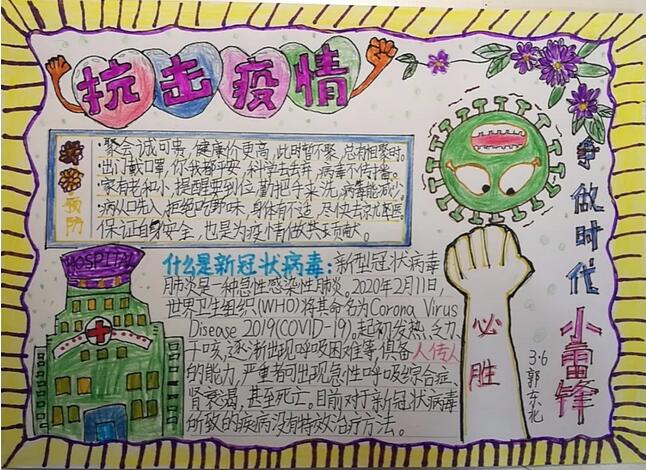 抗击疫情
预防
·聚会诚可贵，健康价更高，此时暂不聚，总有相聚时。
·出门戴口罩，你我都平安，科学去丢弃，病毒不传播。
·家有老和小，提醒要到位，勤把手来洗，病毒能减少
·病从口先入，拒绝吃野味，身体有不适，尽快去就医
保证自身安全，也是为疫情做出贡献。
HOSPITAL
什么是新冠状病毒：新型冠状病毒
肺炎是一种急性感染性肺炎。2020年2月11日，
世界卫生组织(WHO)将其命名为Corona Virus
Disease 2019(COVID-19)。起初发热、乏力、
干咳，逐渐出现呼吸困难等，具备人传人
的能力，严重者可出现急性呼吸综合症、
肾衰竭，甚至死亡，目前对于新冠状病毒
所致的疾病没有特效治疗方法。
必胜
争做时代小雷锋
3.6
郭东